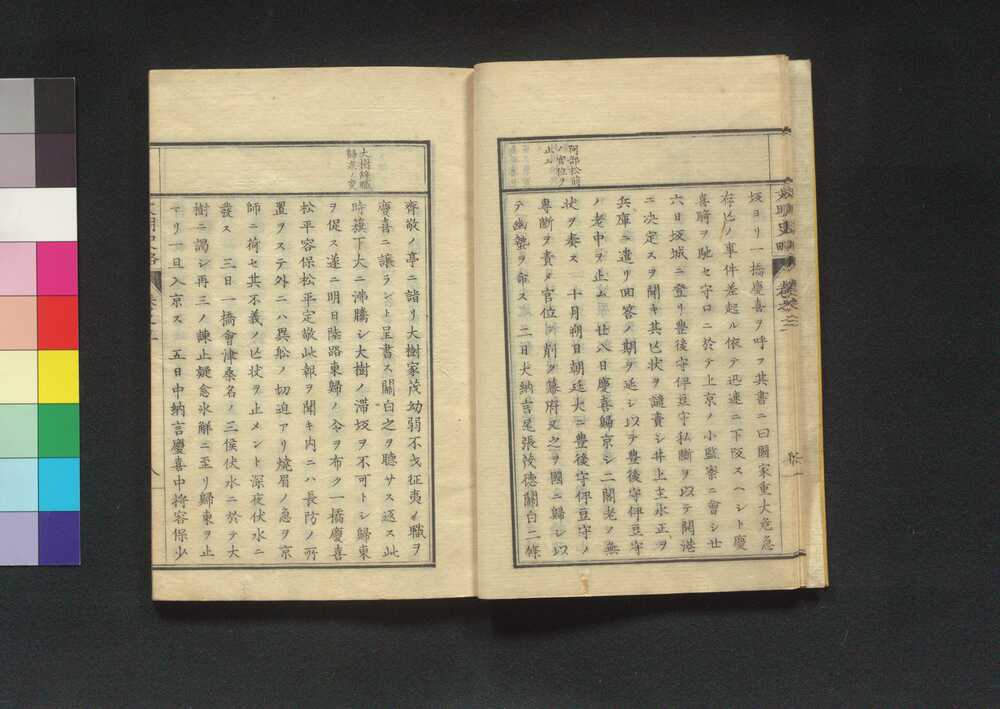 阿部松前
ノ官位ヲ
止ム
坂ヨリ一橋慶喜ヲ呼フ其書ニ曰國家重大危急
存亡ノ事件差起ル依テ迅速ニ下阪スヘシト慶
喜騎ヲ馳セ守口ニ於テ上京ノ小監察ニ會シ廿
六日坂城ニ登リ豊後守伊豆守私斷ヲ以テ開港
ニ決定スヲ聞キ其亡狀ヲ譴責シ井上主水正ヲ
兵庫ニ遣リ回答ノ期ヲ延シ以テ豊後守伊豆守
ノ老中ヲ止ム廿八日慶喜歸京シ二閣老ノ無
狀ヲ奏ス 十月朔日朝廷大ニ豊後守伊豆守ノ
專斷ヲ責メ官位ヲ削ク幕府又之ヲ國ニ歸シ以
テ幽蟄ヲ命ス 二日大納言尾張茂德關白二條
大樹辭職
歸東ノ變
齊敬ノ亭ニ詣リ大樹家茂幼弱不才征夷ノ職ヲ
慶喜ニ讓ラント呈書ス關白之ヲ聽サス返ス此
時旗下大ニ沸騰シ大樹ノ滯坂ヲ不可トシ歸東
ヲ促ス遂ニ明日陸路東歸ノ令ヲ布ク一橋慶喜
松平容保松平定敬此報ヲ聞キ内ニハ長防ノ所
置ヲステ外ニハ異船ノ切迫アリ燒眉ノ急ヲ京
師ニ荷セ其不義ノ亡狀ヲ止メント深夜伏水ニ
發ス 三日一橋會津桑名ノ三侯伏水ニ於テ大
樹ニ謁シ再三ノ諫止疑念氷解ニ至リ歸東ヲ止
マリ一旦入京ス 五日中納言慶喜中將容保少